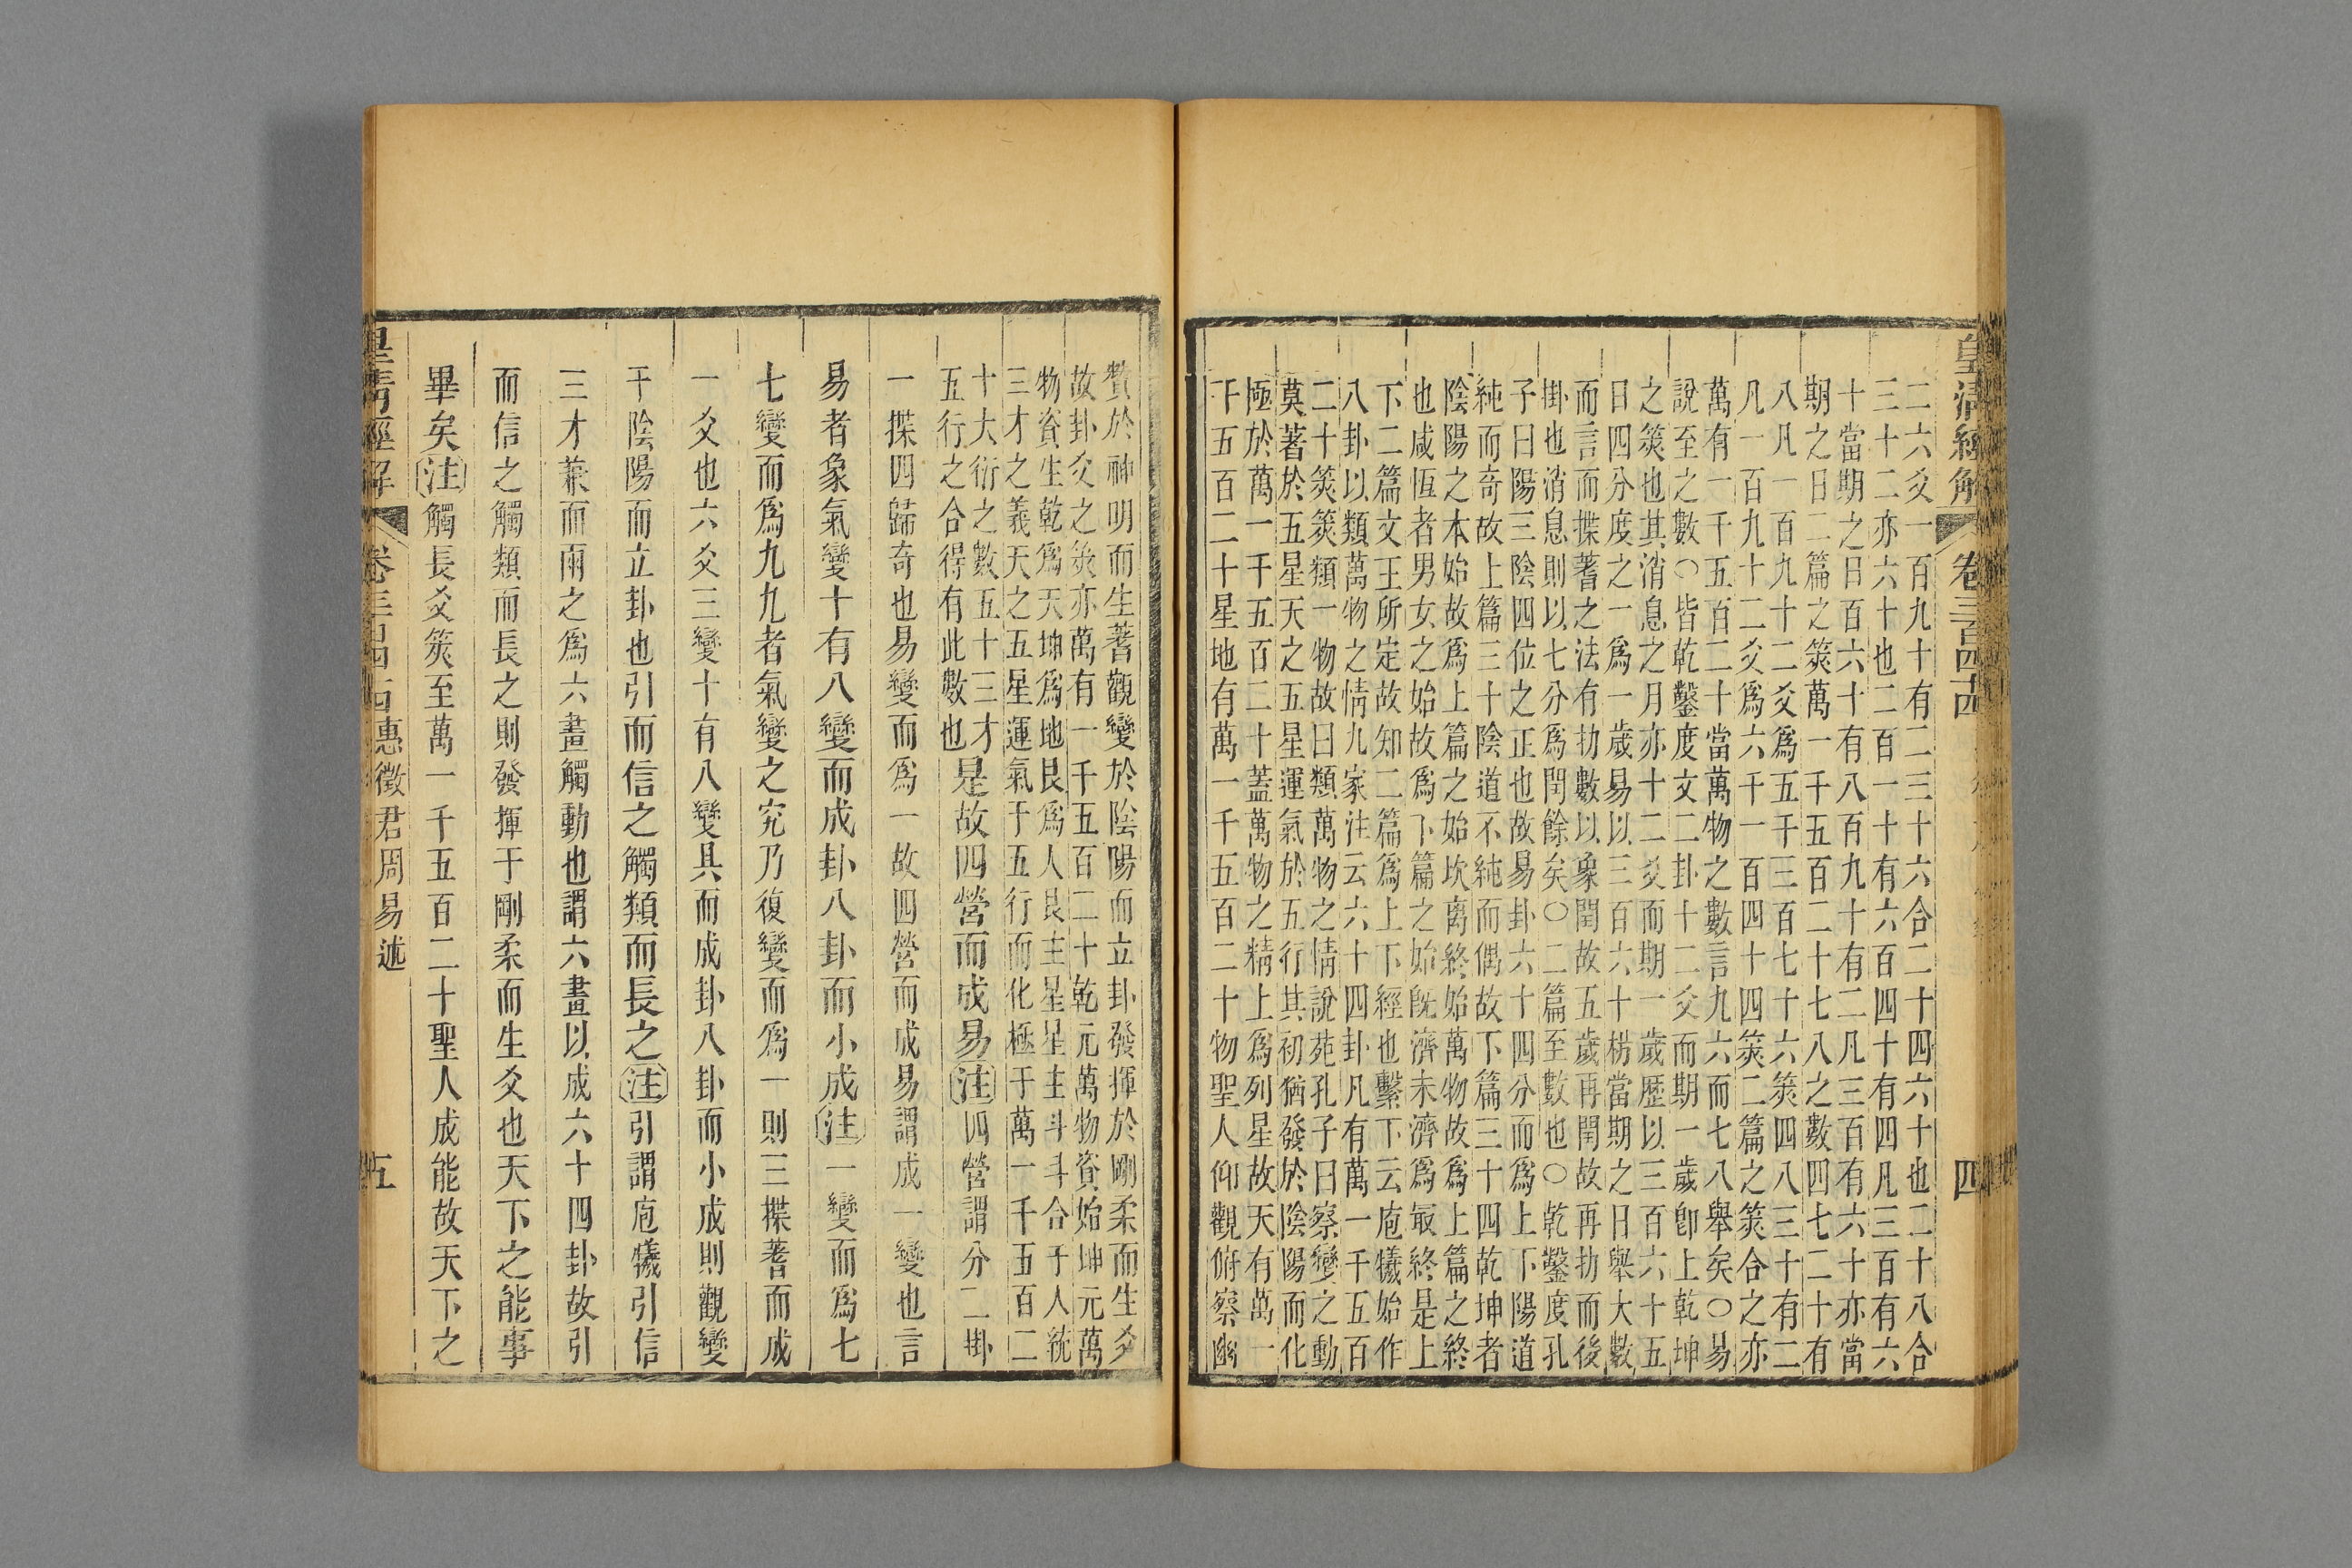 皇清經解 卷三百四十四 四
二六爻一百九十有二三十六合二十四六十也二十八合
三十二亦六十也二百一十有六百四十有四凡三百有六
十當期之日百六十有八百九十有二凡三百有六十亦當
期之日二篇之筴萬一千五百二十七八之數四七二十有
八凡一百九十二爻爲五千三百七十六筴四八三十有二
凡一百九十二爻爲六千一百四十四筴二篇之筴合之亦
萬有一千五百二十當萬物之數言九六而七八舉矣○易
說至之數○皆乾鑿度文二卦十二爻而期一歲卽上乾坤
之筴也其消息之月亦十二爻而期一歲歷以三百六十五
日四分度之一爲一歲易以三百六十枬當期之日舉大數
而言而揲蓍之法有扐數以象閏故五歲再閏故再扐而後
掛也消息則以七分爲閏餘矣○二篇至數也○乾鑿度孔
子曰陽三陰四位之正也故易卦六十四分而爲上下陽道
純而奇故上篇三十陰道不純而偶故下篇三十四乾坤者
陰陽之本始故爲上篇之始坎离終始萬物故爲上篇之終
也咸恆者男女之始故爲下篇之始旣濟未濟爲最終是上
下二篇文王所定故知二篇爲上下經也繫下云庖犧始作
八卦以類萬物之情九家注云六十四卦凡有萬一千五百
二十筴筴類一物故曰類萬物之情說苑孔子曰察變之動
莫著於五星天之五星運氣於五行其初猶發於陰陽而化
極於萬一千五百二十蓋萬物之精上爲列星故天有萬一
千五百二十星地有萬一千五百二十物聖人仰觀俯察幽
贊於神明而生蓍觀變於陰陽而立卦發揮於剛柔而生爻
故卦爻之筴亦萬有一千五百二十乾元萬物資始坤元萬
物資生乾爲天坤爲地艮爲人艮主星星主斗斗合于人統
三才之義天之五星運氣于五行而化極于萬一千五百二
十大衍之數五十三才
五行之合得有此數也是故四營而成易注四營謂分二掛
一揲四歸奇也易變而爲一故四營而成易謂成一變也言
易者象氣變十有八變而成卦八卦而小成注一變而爲七
七變而爲九九者氣變之究乃復變而爲一則三揲蓍而成
一爻也六爻三變十有八變具而成卦八卦而小成則觀變
于陰陽而立卦也引而信之觸類而長之注引謂庖犧引信
三才兼而兩之爲六畫觸動也謂六畫以成六十四卦故引
而信之觸類而長之則發揮于剛柔而生爻也天下之能事
畢矣注觸長爻筴至萬一千五百二十聖人成能故天下之
皇清經解 卷三百四十四 惠徵君周易述 五